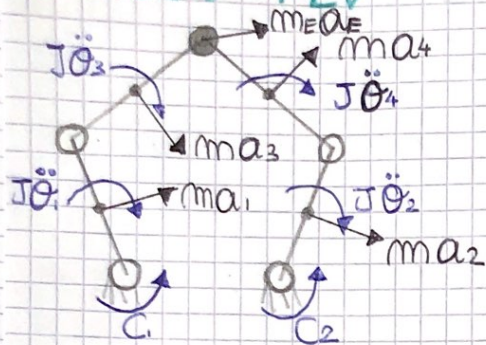 mEaE
Jθ̈3
ma4
Jθ̈4
ma3
Jθ̈1
ma1
Jθ̈2
ma2
C1
C2